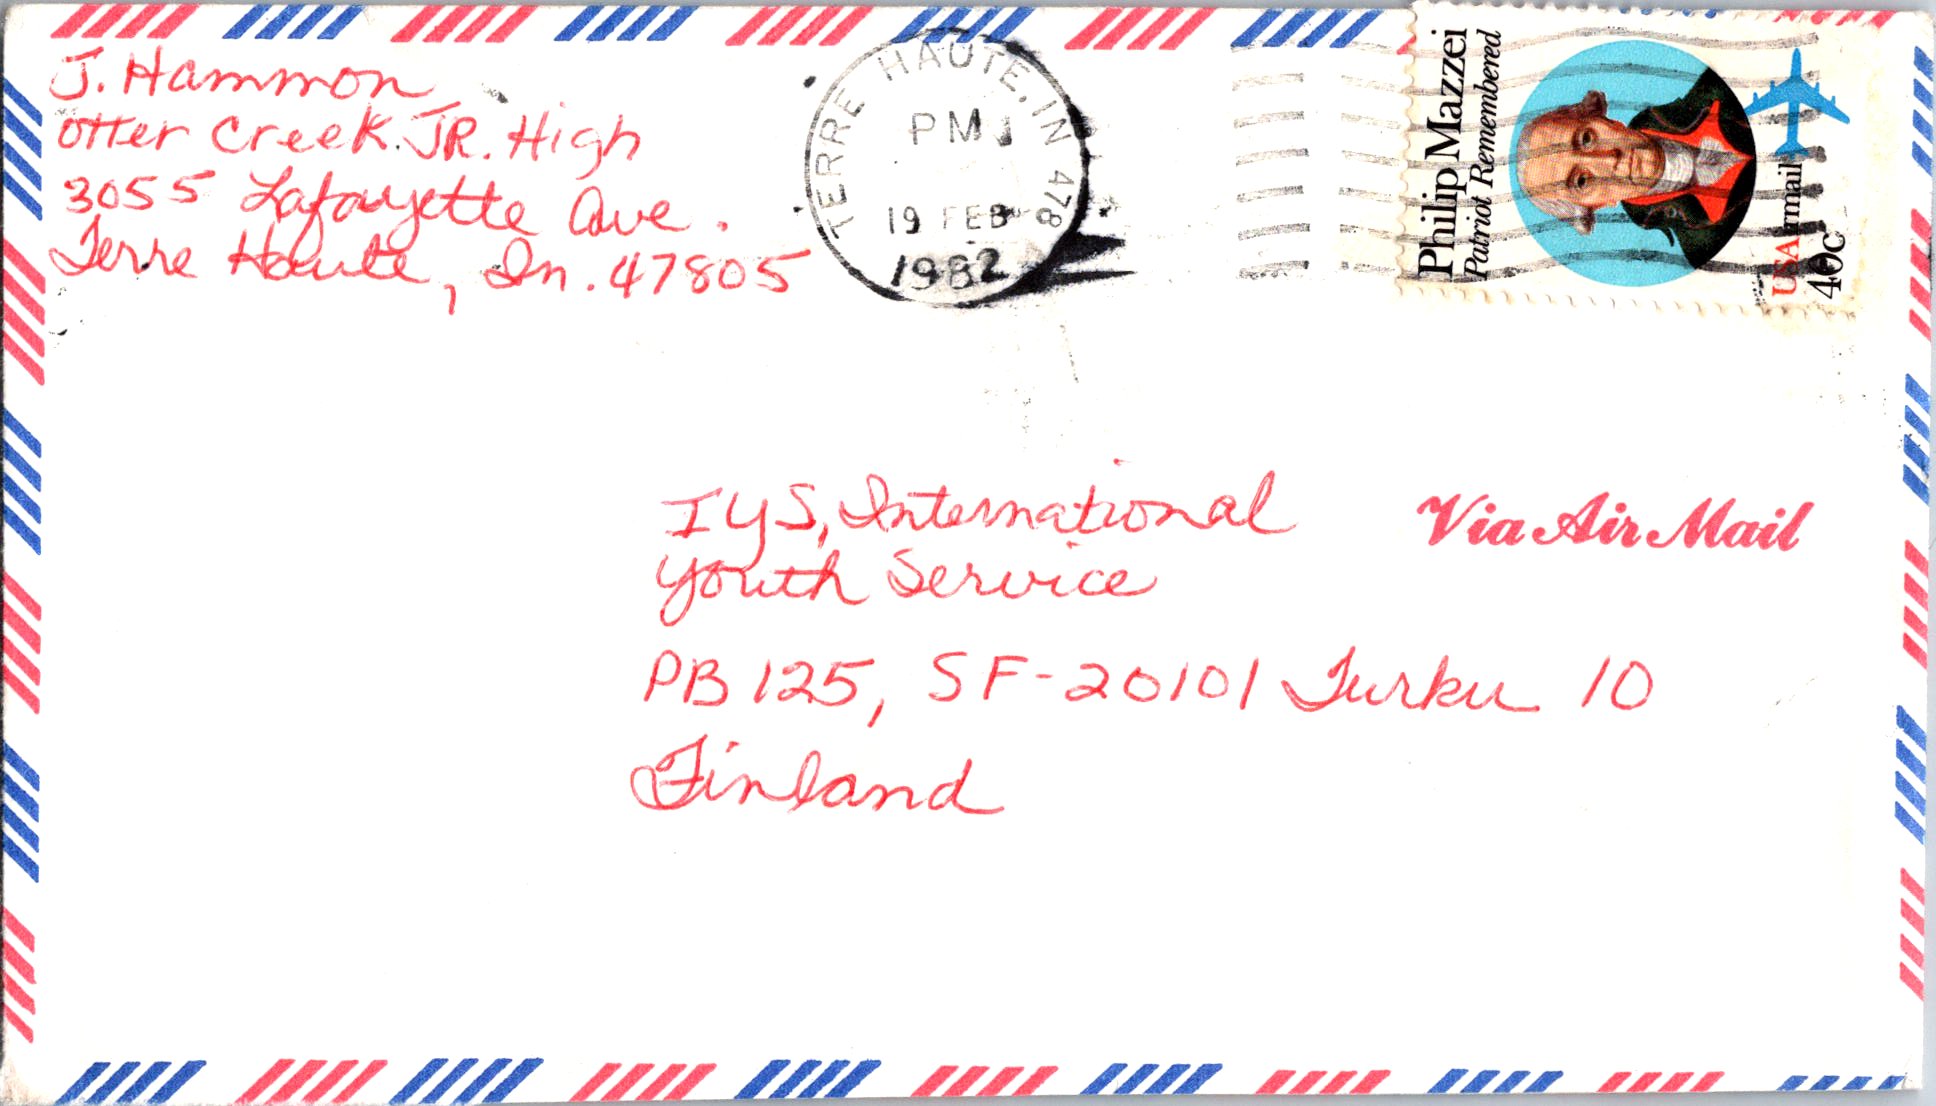 J. Hammon
Otter Creek JR. High
3055 Lafayette Ave.
Terre Haute, In. 47805
TERRE HAUTE, IN 478
PM
19 FEB
1982
Philip Mazzei
Patriot Remembered
USAirmail
40c
IYS, International
Youth Service
Via Air Mail
PB 125, SF-20101 Turku 10
Finland